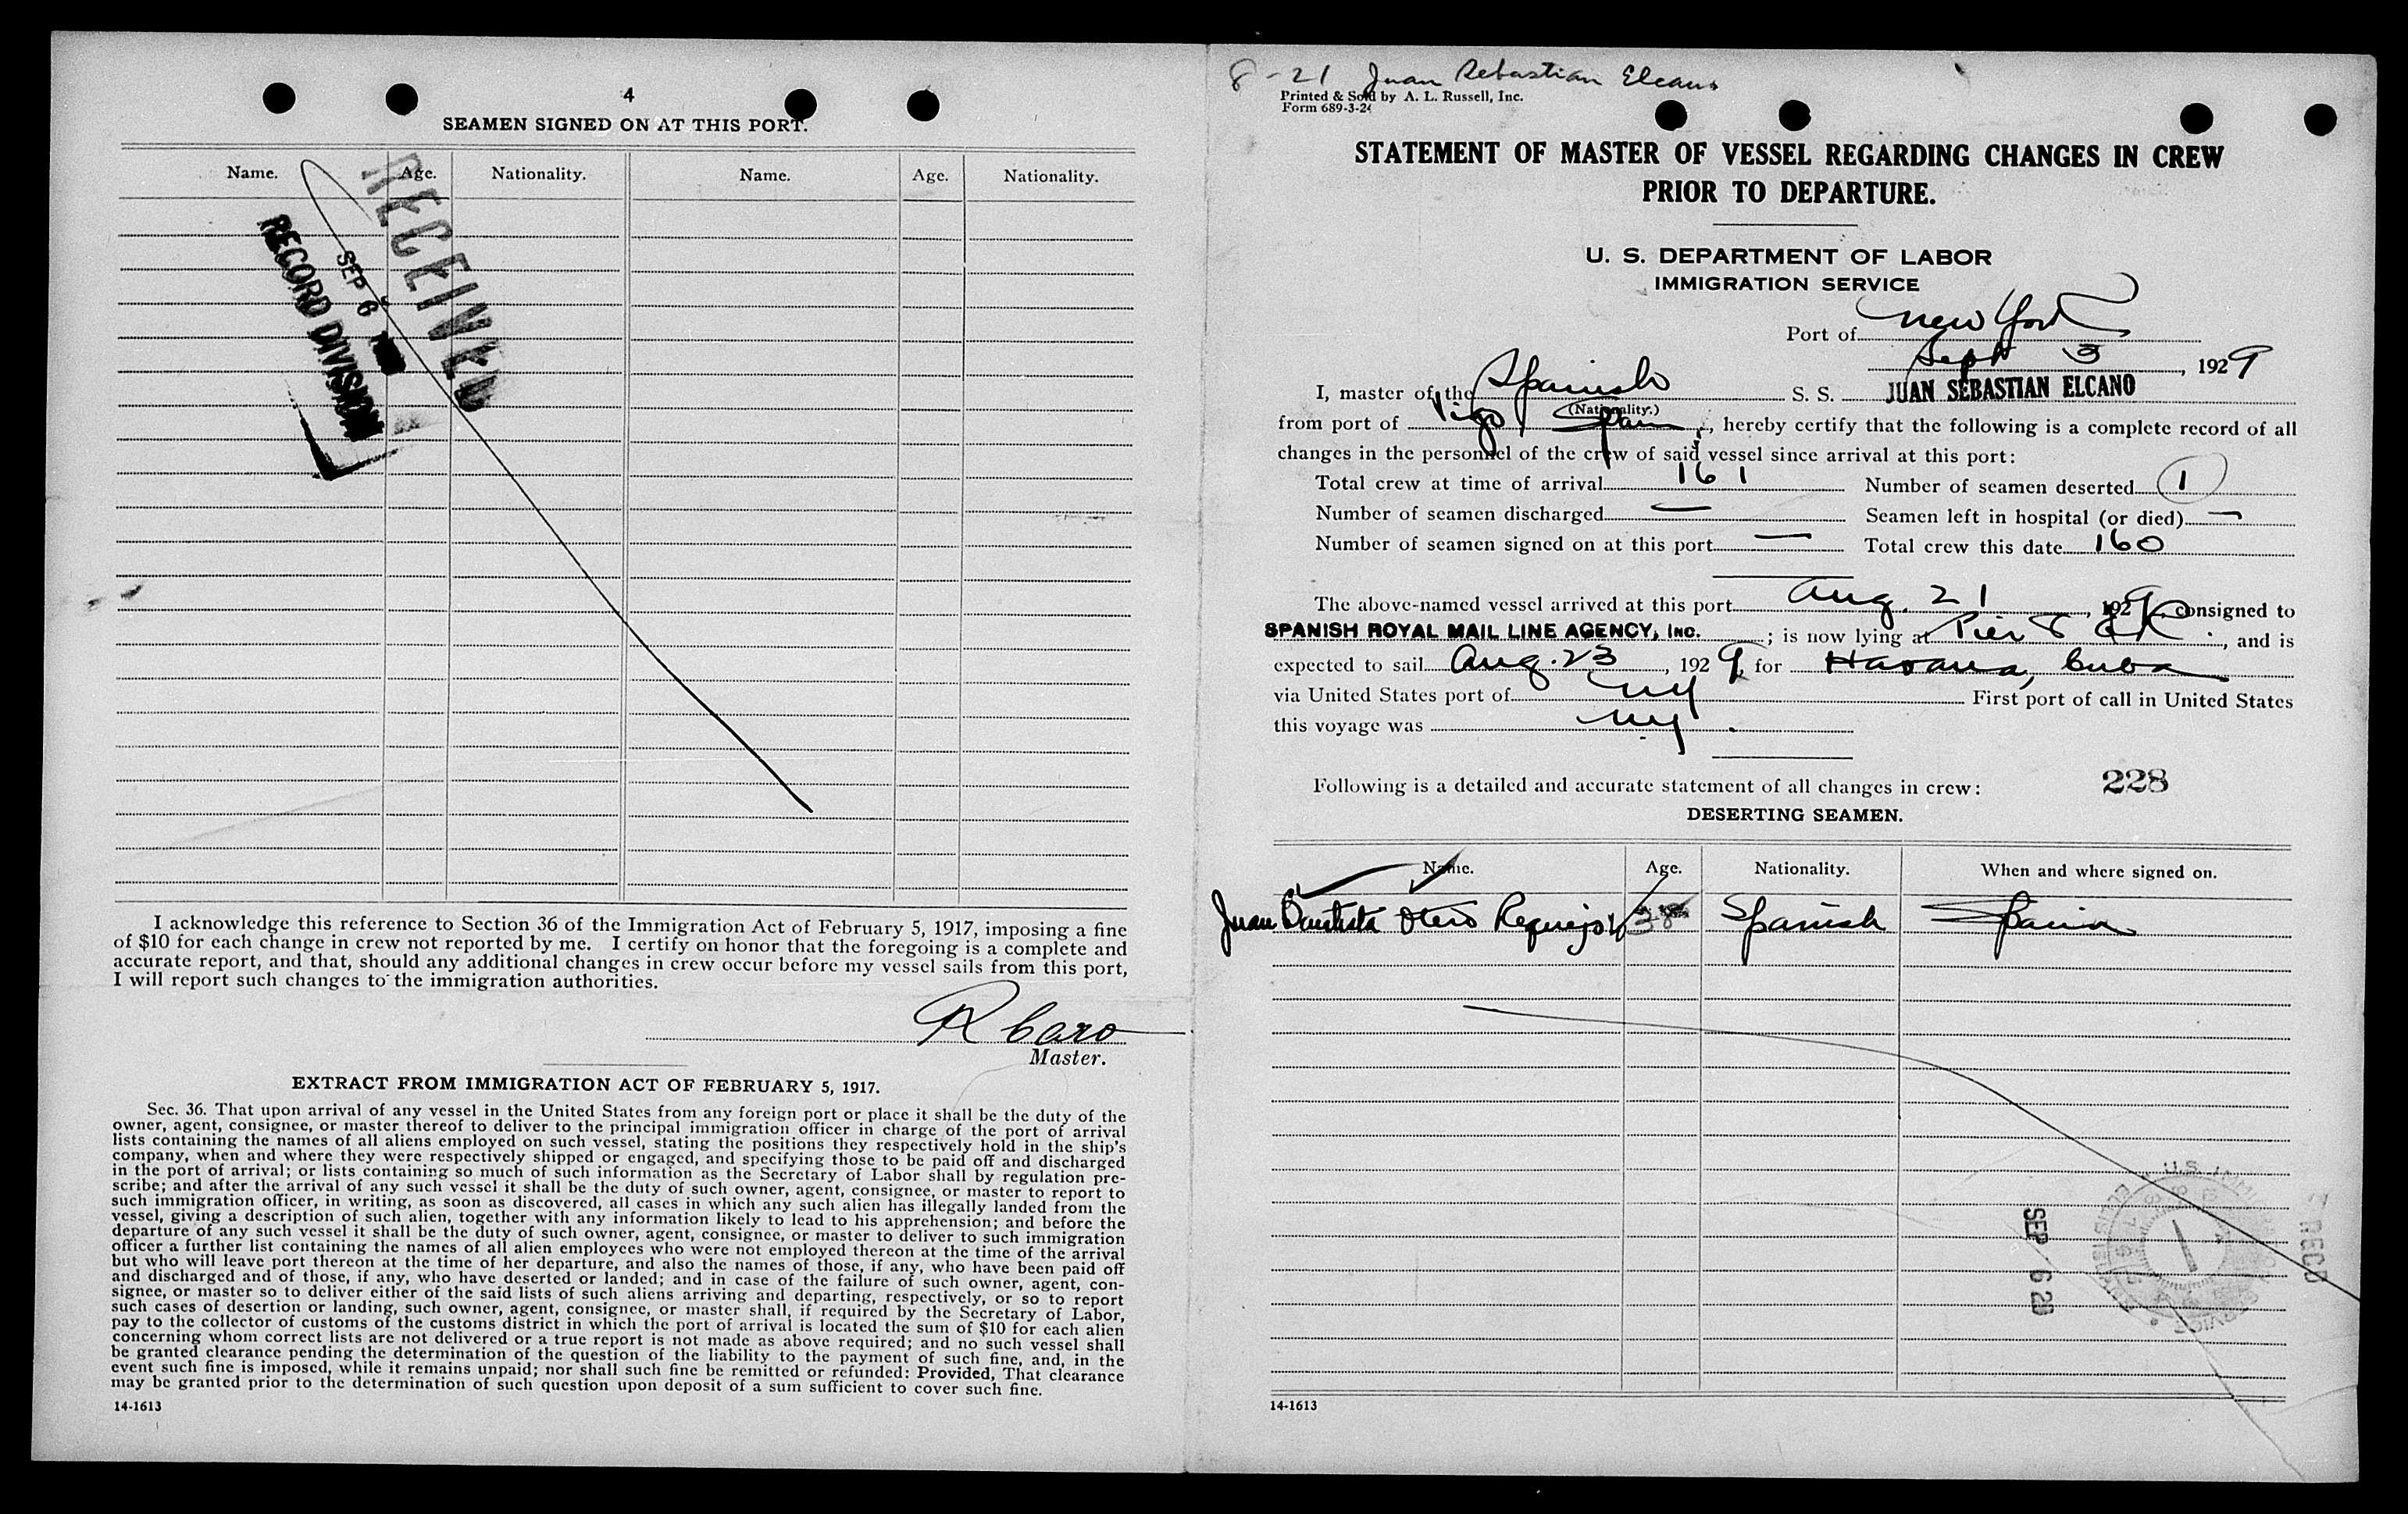 4
SEAMEN SIGNED ON AT THIS PORT.
Name. Age. Nationality. Name. Age. Nationality.
RECEIVED
SEP 6
RECORD DIVISION
I acknowledge this reference to Section 36 of the Immigration Act of February 5, 1917, imposing a fine
of $10 for each change in crew not reported by me. I certify on honor that the foregoing is a complete and
accurate report, and that, should any additional changes in crew occur before my vessel sails from this port,
I will report such changes to the immigration authorities.
R Caro
Master.
EXTRACT FROM IMMIGRATION ACT OF FEBRUARY 5, 1917.
Sec. 36. That upon arrival of any vessel in the United States from any foreign port or place it shall be the duty of the
owner, agent, consignee, or master thereof to deliver to the principal immigration officer in charge of the port of arrival
lists containing the names of all aliens employed on such vessel, stating the positions they respectively hold in the ship's
company, when and where they were respectively shipped or engaged, and specifying those to be paid off and discharged
in the port of arrival; or lists containing so much of such information as the Secretary of Labor shall by regulation pre-
scribe; and after the arrival of any such vessel it shall be the duty of such owner, agent, consignee, or master to report to
such immigration officer, in writing, as soon as discovered, all cases in which any such alien has illegally landed from the
vessel, giving a description of such alien, together with any information likely to lead to his apprehension; and before the
departure of any such vessel it shall be the duty of such owner, agent, consignee, or master to deliver to such immigration
officer a further list containing the names of all alien employees who were not employed thereon at the time of the arrival
but who will leave port thereon at the time of her departure, and also the names of those, if any, who have been paid off
and discharged and of those, if any, who have deserted or landed; and in case of the failure of such owner, agent, con-
signee, or master so to deliver either of the said lists of such aliens arriving and departing, respectively, or so to report
such cases of desertion or landing, such owner, agent, consignee, or master shall, if required by the Secretary of Labor,
pay to the collector of customs of the customs district in which the port of arrival is located the sum of $10 for each alien
concerning whom correct lists are not delivered or a true report is not made as above required; and no such vessel shall
be granted clearance pending the determination of the question of the liability to the payment of such fine, and, in the
event such fine is imposed, while it remains unpaid; nor shall such fine be remitted or refunded: Provided, That clearance
may be granted prior to the determination of such question upon deposit of a sum sufficient to cover such fine.
14-1613
8-21 Juan Sebastian Elcano
Printed & Sold by A. L. Russell, Inc.
Form 689-3-24
STATEMENT OF MASTER OF VESSEL REGARDING CHANGES IN CREW
PRIOR TO DEPARTURE.
U. S. DEPARTMENT OF LABOR
IMMIGRATION SERVICE
Port of New York
Sept 3, 1929
I, master of the Spanish S. S. JUAN SEBASTIAN ELCANO
(Nationality.)
from port of Vigo Spain, hereby certify that the following is a complete record of all
changes in the personnel of the crew of said vessel since arrival at this port:
Total crew at time of arrival 161 Number of seamen deserted 1
Number of seamen discharged — Seamen left in hospital (or died) —
Number of seamen signed on at this port — Total crew this date 160
The above-named vessel arrived at this port Aug. 21, 1929, consigned to
SPANISH ROYAL MAIL LINE AGENCY, INC.; is now lying at Pier 8 E R., and is
expected to sail Aug. 23, 1929, for Havana, Cuba
via United States port of NY First port of call in United States
this voyage was NY.
Following is a detailed and accurate statement of all changes in crew: 228
DESERTING SEAMEN.
Name. Age. Nationality. When and where signed on.
Juan Bautista Otero Requejo 38 Spanish Spain
SEP 6 29
RECD
14-1613